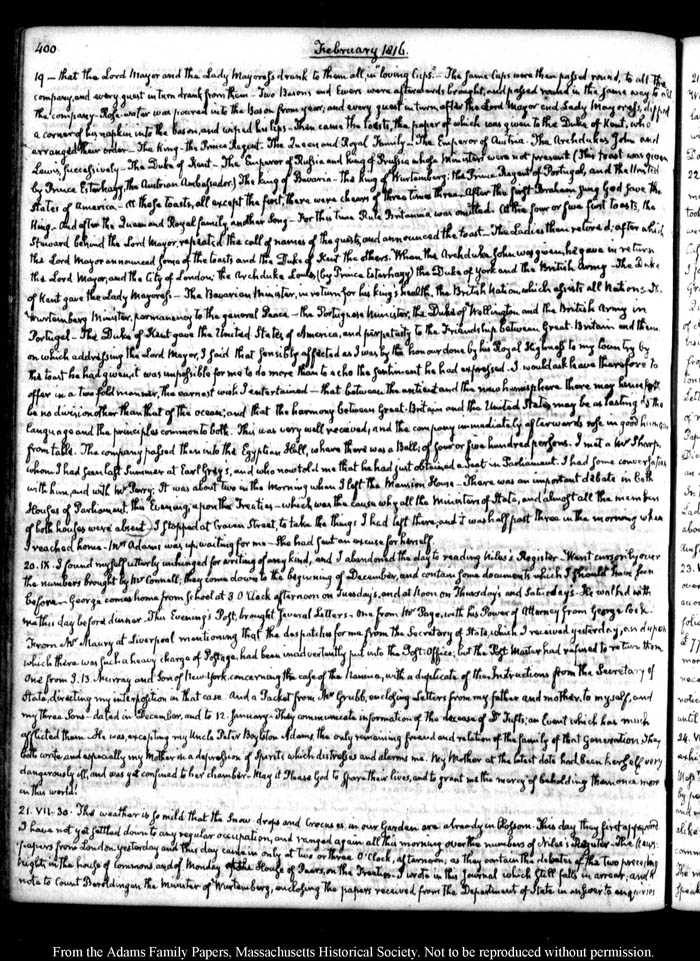 400
February 1816.
19 — that the Lord Mayor and the Lady Mayoress drank to them all, in "loving Cups" — The same Cups were then passed round, to all the
company, and every guest in turn drank from them — Two Basons and Ewers were afterwards brought, and passed round in the same way to all
the company — Rose-water was poured into the Bason from year, and every guest in turn, after the Lord Mayor and Lady Mayoress, dipped
a corner of his napkin into the bason, and wiped his lips — Then came the toasts, the paper of which was given to the Duke of Kent, who
arranged their order — The King — the Prince Regent. The Queen and Royal Family — The Emperor of Austria. The Archdukes John and
Lewis, successively — The Duke of Kent — The Emperor of Russia and king of Prussia whose Ministers were not present (This toast was given
by Prince Esterhazy, the Austrian Ambassador) The king of Bavaria — the king of Wurtemberg; the Prince Regent of Portugal, and the United
States of America — At these toasts, all except the first, there were cheers of three times three — After the first Braham sung God save the
King — And after the Queen and Royal family, another Song — For this time Rule Britannia was omitted. After four or five first toasts, the
Steward behind the Lord Mayor, repeated the call of names of the guests, and announced the toast — The Ladies then retired; after which
the Lord Mayor announced some of the toasts and the Duke of Kent the others. When the Archduke John was given, he gave in return
the Lord Mayor, and the City of London; the Archduke Louis, (by Prince Esterhazy) the Duke of York and the British Army — The Duke
of Kent gave the Lady Mayoress — The Bavarian Minister, in return for his king's health, the British Nation, which assists all Nations. The
Wurtemberg Minister, permanency to the general Peace — the Portuguese Minister, the Duke of Wellington and the British Army in
Portugal — The Duke of Kent gave the United States of America, and perpetuity to the Friendship between Great-Britain and them
on which addressing the Lord Mayor, I said that sensibly affected as I was by the honour done by his Royal Highness to my country by
the toast he had given, it was impossible for me to do more than to echo the sentiment he had expressed. I would ask leave therefore to
offer in a two fold manner, the earnest wish I entertained — that between the antient and the new hemisphere there may henceforth
be no division other than that of the ocean; and that the harmony between Great-Britain and the United States may be as lasting as the
language and the principles common to both. This was very well received, and the company immediately afterwards rose in good humour
from table. The company passed then into the Egyptian Hall, where there was a Ball; of four or five hundred persons. I met a Mr Sharp,
whom I had seen last Summer at Earl Grey's, and who now told me that he had just obtained a seat in Parliament. I had some conversation
with him, and with Mr Perry. It was about two in the Morning when I left the Mansion House — There was an important debate in both
Houses of Parliament, this Evening, upon the Treaties — which was the cause why all the Ministers of State, and almost all the members
of both houses were absent. I stopped at Craven Street, to take the things I had left there; and it was half past three in the morning when
I reached home — Mrs Adams was up, waiting for me — She had sent an excuse for herself.
20. IX. I found myself utterly unhinged for writing of any kind, and I abandoned the day to reading Niles's Register — Went cursorily over
the numbers brought by Mr Connell; they come down to the beginning of December, and contain some documents which I should have seen
before — George comes home from School at 3 O'Clock afternoon on Tuesdays, and at Noon on Thursdays and Saturdays — He walked with
me this day before dinner. This Evening's Post, brought several Letters — One from Mr Pago, with his Power of Attorney from George Cook.
From Mr Maury at Liverpool mentioning that the despatches for me from the Secretary of State, which I received yesterday, and upon
which there was such a heavy charge of Postage, had been inadvertently put into the Post-Office; but the Post Master had refused to return them
One from J. B. Murray and Son of New-York, concerning the case of the Nanina, with a duplicate of the Instructions from the Secretary of
State, directing my interposition in that case. And a Packet from Mr Grubb, enclosing Letters from my father and mother, to myself, and
my three Sons — dated in December, and to 12. January — They communicate information of the decease of Dr Tufts; an Event which has much
afflicted them — He was, excepting my Uncle Peter Boylston Adams, the only remaining friend and relation of the family of that Generation — They
both write and especially my Mother in a depression of Spirits which distresses and alarms me. My Mother at the latest date had been herself very
dangerously ill, and was yet confined to her chamber — May it Please God to spare their lives, and to grant me the mercy of beholding them once more
in this world!
21. VII-30. The weather is so mild that the Snow-drops and Crocuses, in our Garden are already in blossom. This day they first appeared
I have not yet settled down to any regular occupation, and ranged again all this morning over the numbers of Niles's Register — The News-
papers from London yesterday and this day came in only at two or three O'Clock, afternoon; as they contain the debates of the two preceding
nights, in the house of Commons, and of Monday the House of Peers, on the Treaties — I wrote in this Journal which still falls in arrear; and a
note to Count Beroldingen the Minister of Wurtemberg, enclosing the papers received from the Department of State in answer to enquiries
From the Adams Family Papers, Massachusetts Historical Society. Not to be reproduced without permission.